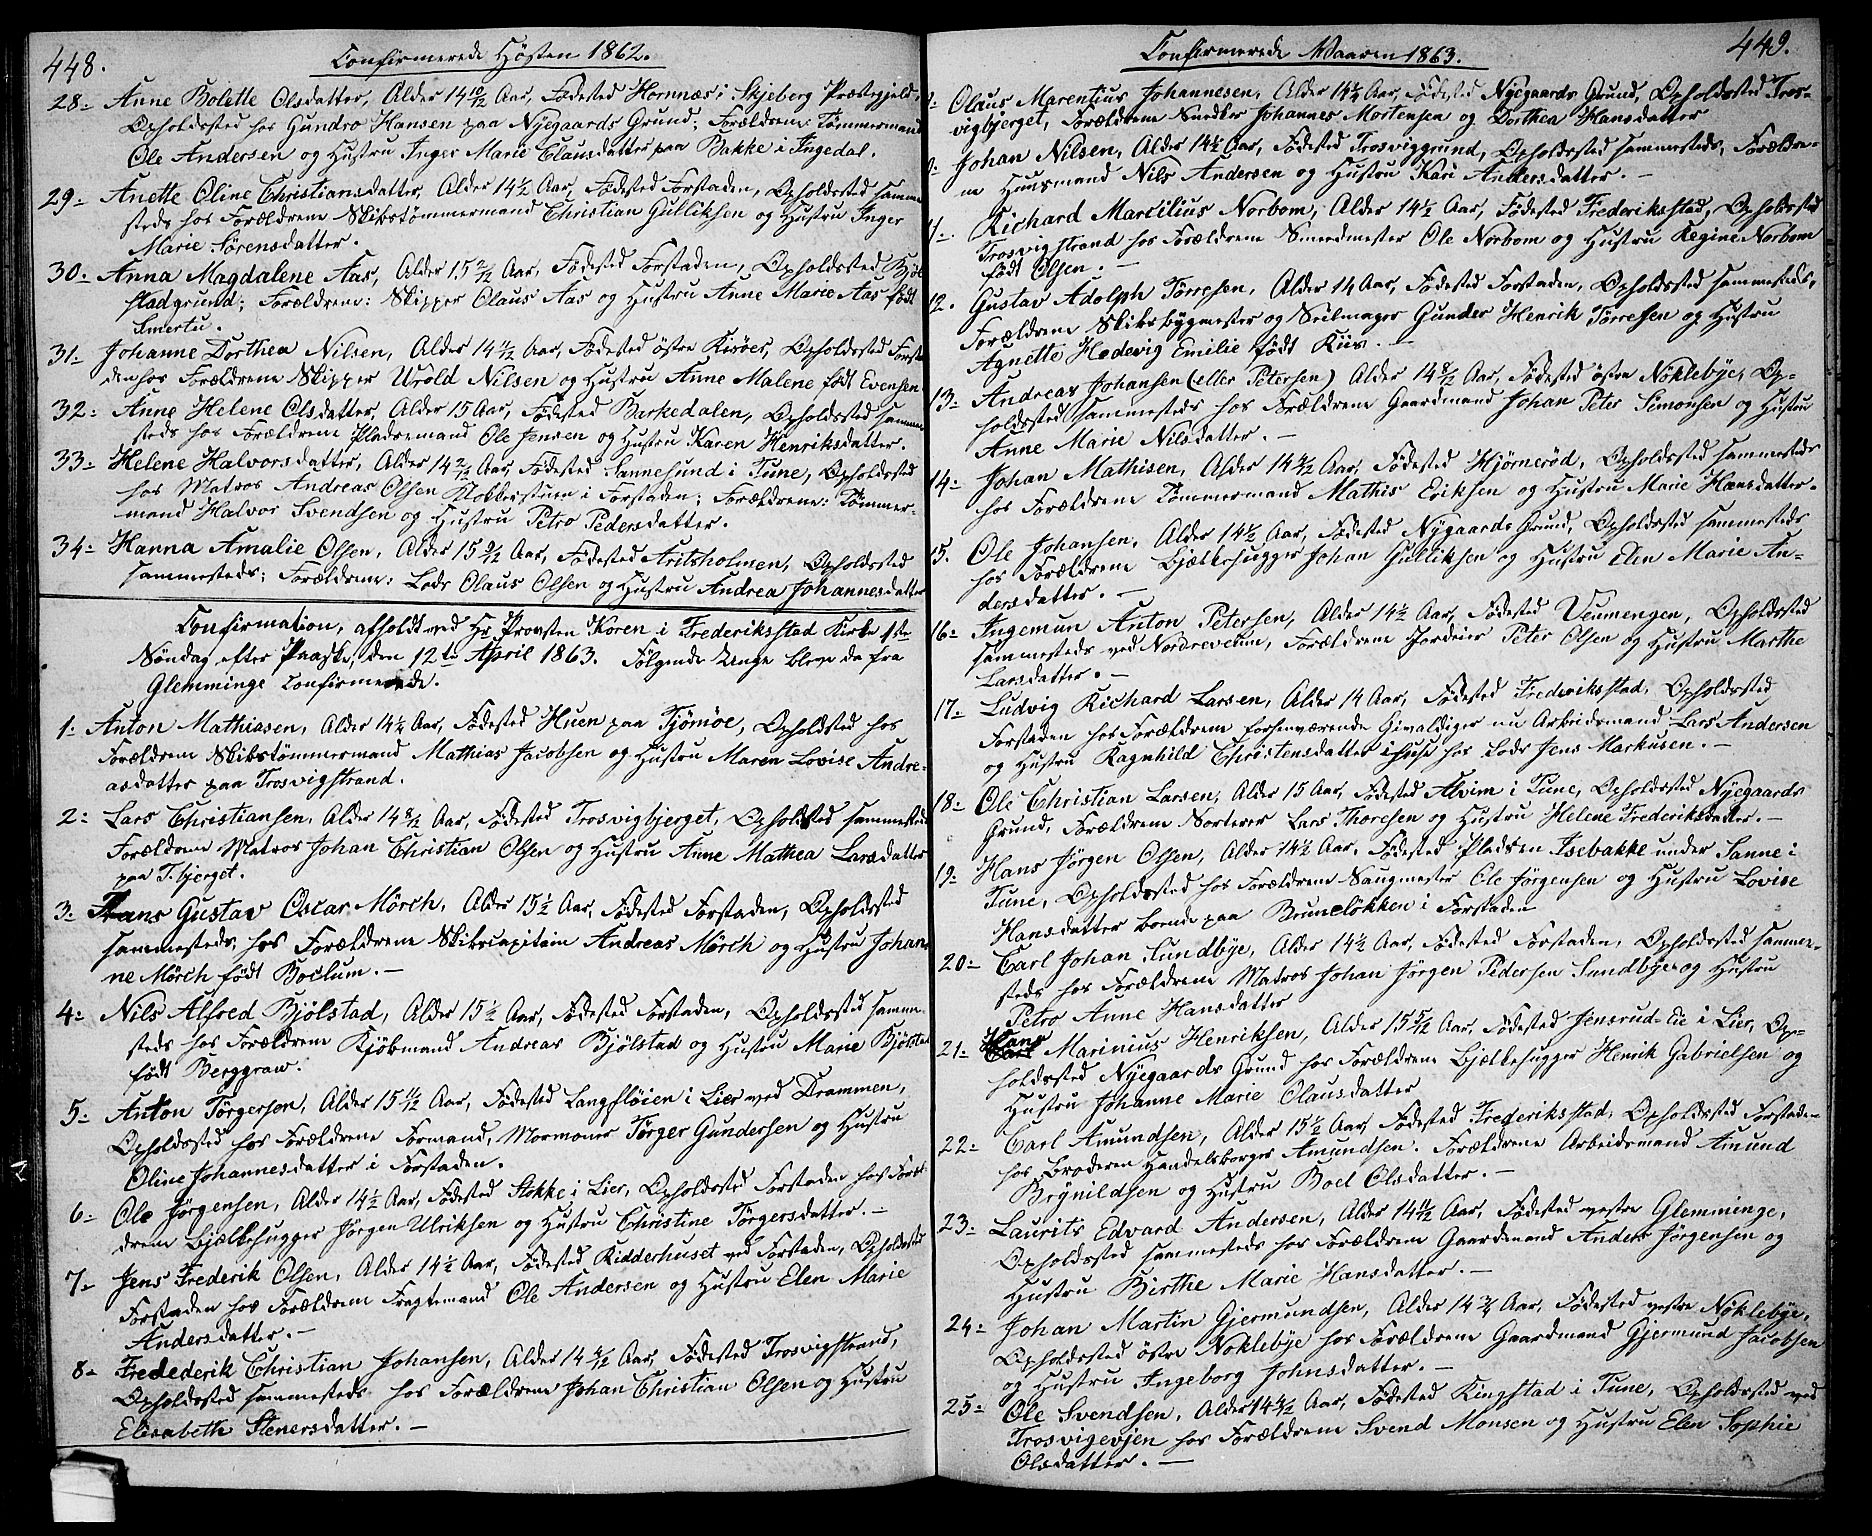 448.
Confirmerede Høsten 1862.
28- Anne Bolette Olsdatter, Alder 14 10/12 Aar, Fødested Hornnæs i Skjeberg Præstegjeld,
Opholdssted hos Gundro Hansen paa Nyegaards Grund; Forældrene: Tømmermand
Ole Andersen og Hustru Inger Marie Clausdatter paa Bakke i Ingedal.
29- Anette Oline Christiansdatter, Alder 14½ Aar, Fødested Forstaden, Opholdssted samme
steds hos Forældrene Skibstømmermand Christian Gulliksen og Hustru Inger
Marie Sørensdatter.
30- Anna Magdalene Aas, Alder 15 2/12 Aar, Fødested Forstaden, Opholdssted Bjøl
stadgrund; Forældrene: Skipper Claus Aas og Hustru Anne Marie Aas født
Smertu.
31- Johanne Dorthea Nilsen, Alder 14 1/12 Aar, Fødested østre Kirøer, Opholdssted Forsta
den hos Forældrene Skipper Urold Nilsen og Hustru Anne Malene født Evensen
32- Anne Helene Olsdatter, Alder 15 Aar, Fødested Barkedalen, Opholdssted samme
steds hos Forældrene Pladsemand Ole Jensen og Hustru Karen Henriksdatter.
33- Helene Halvorsdatter, Alder 14 2/12 Aar, Fødested Sannesund i Tune, Opholdssted
hos Matros Andreas Olsen Klokkerstuen i Forstaden; Forældrene: Tømmer-
mand Halvor Svendsen og Hustru Petro Pedersdatter.
34- Hanna Amalie Olsen, Alder 15 9/12 Aar, Fødested Aritsholmen, Opholdssted
sammesteds; Forældrene: Lods Olaus Olsen og Hustru Andrea Johannesdatter
Confirmation, afholdt ved Hr. Provsten Koren i Frederiksstad Kirke 1ste
Søndag efter Paaske, den 12te April 1863. Følgende Unge bleve da fra
Glemminge Confirmerede.
1- Anton Mathiasen, Alder 14½ Aar, Fødested Huen paa Tjømøe, Opholdsted hos
Forældrene Skibstømmermand Mathias Jacobsen og Hustru Maren Lovise Andre-
asdatter paa Trosvigstrand.
2- Lars Christiansen, Alder 14 8/12 Aar, Fødested Trosvigbjerget, Opholdsted sammesteds
Forældrene Matros Johan Christian Olsen og Hustru Anne Mathea Larsdatter
paa T.bjerget.
3. Frans Gustav Oscar Mörch, Alder 15½ Aar, Fødested Forstaden, Opholdssted
sammesteds, hos Forældrene Skibscapitain Andreas Mörch og Hustru Johan
ne Mörch født Boelum.—
4- Nils Alfred Bjölstad, Alder 15½ Aar, Fødested Forstaden, Opholdssted samme-
steds hos Forældrene Kjöbmand Andreas Bjölstad og Hustru Marie Bjölstad
født Berggraw.
5- Anton Törgersen, Alder 15 11/12 Aar, Fødested Langsløien i Lier ved Drammen,
Opholdssted hos Forældrene Formand, Mormoner Törger Gundersen og Hustru
Oline Johannesdatter i Forstaden.
6- Ole Jørgensen, Alder 14½ Aar, Fødested Stokke i Lier, Opholdssted Forstaden hos Foræl-
drene Bjælkehugger Jörgen Ulriksen og Hustru Christine Törgersdatter.—
7- Jens Frederik Olsen, Alder 14½ Aar, Fødested Ridderhuset ved Forstaden, Opholdssted
Forstaden hos Forældrene Fragtemand Ole Andersen og Hustru Elen Marie
Andersdatter.—
8- Frederik Christian Johansen, Alder 14 4/12 Aar, Fødested Trosvigstrand,
Opholdssted sammesteds hos Forældrene Johan Christian Olsen og Hustru
Elisabeth Stenersdatter.—
449.
Confirmerede Vaaren 1863.
Olaus Marentius Johannesen, Alder 14¼ Aar, Fødested Nyegaards Grund, Opholdssted Tros-
vigbjerget, Forældrene Snedker Johannes Mortensen og Dorthea Hansdatter
Johan Nilsen, Alder 14½ Aar, Fødested Trosviggrund, Opholdssted sammesteds, Forældre-
ne Huusmand Nils Andersen og Hustru Kari Andersdatter.—
Richard Marcilius Norbom, Alder 14½ Aar, Fødested Frederiksstad, Opholdssted
Trosvigstrand hos Forældrene Smedmester Ole Norbom og Hustru Regine Norbom
født Olsen.—
12. Gustav Adolph Törresen, Alder 14 Aar, Fødested Forstaden, Opholdssted sammesteds,
Forældrene Skibsbygmester og Seilmager Gunder Henrik Törresen og Hustru
Agnette Hedevig Emilie født Kiis.—
13- Andreas Johansen (eller Petersen) Alder 14 8/12 Aar, Fødested østre Nöklebye, Op-
holdssted sammesteds hos Forældrene Gaardmand Johan Peter Simonsen og Hustru
Anne Marie Nilsdatter.—
14- Johan Mathisen, Alder 14 9/12 Aar, Fødested Hjörnerød, Opholdssted sammesteds
hos Forældrene Tømmermand Mathis Eriksen og Hustru Marie Hansdatter.
15. Ole Johansen, Alder 14½ Aar, Fødested Nygaards Grund, Opholdssted sammesteds
hos Forældrene Bjelkehugger Johan Gulliksen og Hustru Elen Marie An-
dersdatter.—
16- Ingemun Anton Petersen, Alder 14½ Aar, Fødested Veumengen, Opholdssted
sammesteds ved Nordreveum, Forældrene Jordeier Peter Olsen og Hustru Marthe
Larsdatter.—
17- Ludvig Richard Larsen, Alder 14 Aar, Fødested Frederiksstad, Opholdssted
Forstaden hos Forældrene forhenværende Givaldiger nu Arbeidsmand Lars Andersen
og Hustru Ragnhild Christensdatter i huse hos Lods Jens Markusen.—
18- Ole Christian Larsen, Alder 15 Aar, Fødested Alvim i Tune, Opholdssted Nyegaards
Grund, Forældrene Sorterer Lars Thoresen og Hustru Helene Frederiksdatter.—
19- Hans Jörgen Olsen, Alder 14½ Aar, Fødested Pladsen Isebakke under Sanne i
Tune, Opholdssted hos Forældrene Saugmester Ole Jørgensen og Hustru Lovise
Hansdatter boende paa Bruneløkken i Forstaden
20- Carl Johan Sundbye, Alder 14½ Aar, Fødested Forstaden, Opholdssted samme-
steds hos Forældrene Matros Johan Jörgen Pedersen Sundbye og Hustru
Petro Anne Hansdatter
21- Hans Marinius Henriksen, Alder 15 5/12 Aar, Fødested Jensrud-Eie i Lier, Op-
holdssted Nyegaards Grund hos Forældrene Bjelkehugger Henrik Gabrielsen og
Hustru Johanne Marie Olausdatter
22- Carl Amundsen, Alder 15½ Aar, Fødested Frederiksstad, Opholdssted Forstaden
hos Broderen Handelsborger Amundsen. Forældrene Arbeidsmand Amund
Brynildsen og Hustru Boel Olsdatter.—
23- Laurits Edvard Andersen, Alder 14 11/12 Aar, Fødested vestre Glemminge,
Opholdssted sammesteds hos Forældrene Gaardmand Anders Jörgensen og
Hustru Birthe Marie Hansdatter.—
24- Johan Martin Gjermundsen, Alder 14¾ Aar, Fødested vestre Nöklebye,
Opholdssted østre Nöklebye hos Forældrene Gaardmand Gjermund Jacobsen
og Hustru Ingeborg Johnsdatter.—
25- Ole Svendsen, Alder 14 4/12 Aar, Fødested Kingstad i Tune, Opholdssted ved
Trosvigevjen hos Forældrene Svend Monsen og Hustru Elen Sophie
Olsdatter.—